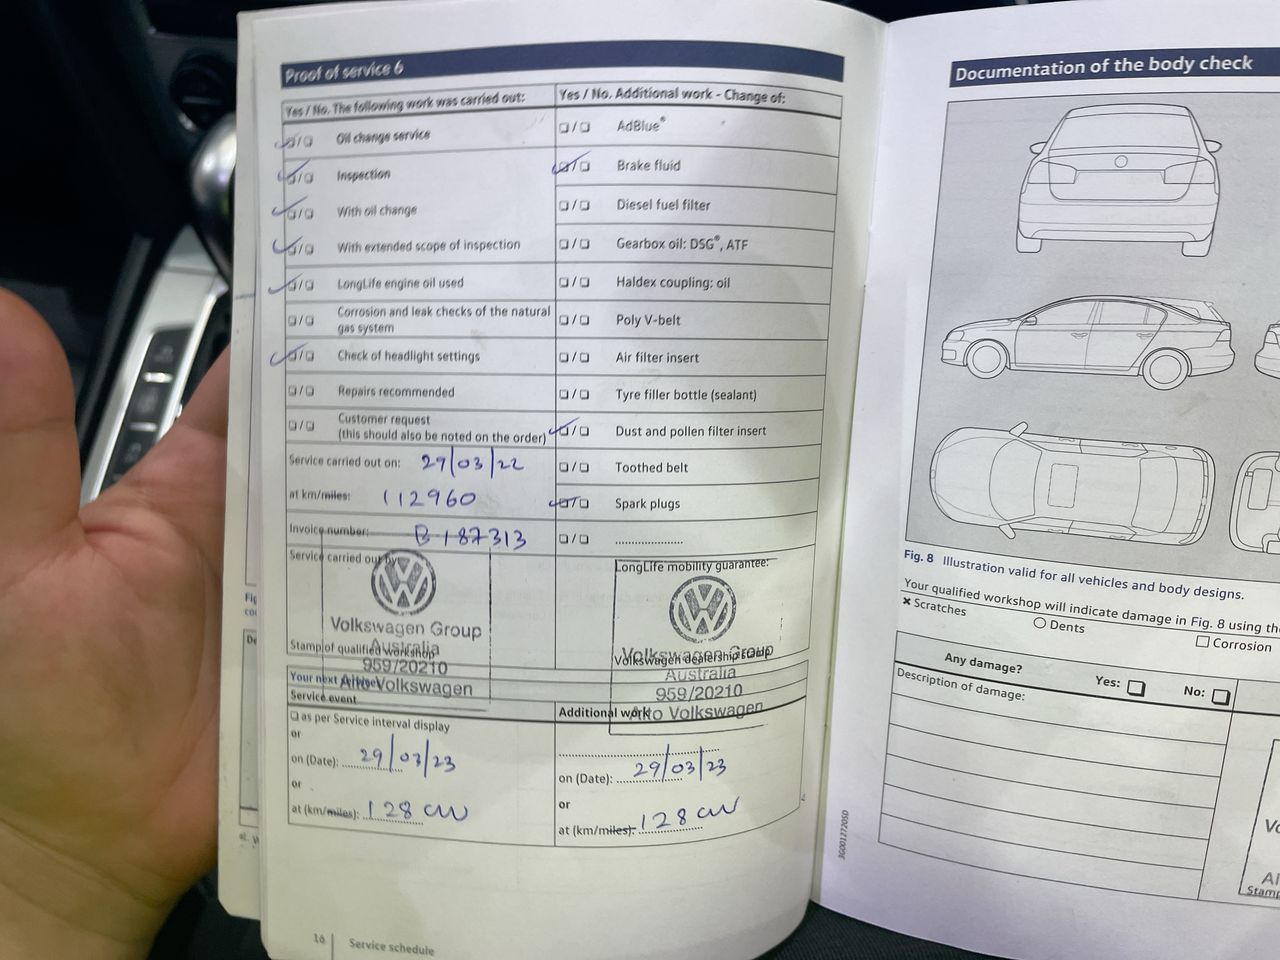 Proof of service 6
Yes / No. The following work was carried out:
Yes / No. Additional work - Change of:
❏/❏ Oil change service
❏/❏ AdBlue®
❏/❏ Inspection
❏/❏ Brake fluid
❏/❏ With oil change
❏/❏ Diesel fuel filter
❏/❏ With extended scope of inspection
❏/❏ Gearbox oil: DSG®, ATF
❏/❏ LongLife engine oil used
❏/❏ Haldex coupling: oil
❏/❏ Corrosion and leak checks of the natural
gas system
❏/❏ Poly V-belt
❏/❏ Check of headlight settings
❏/❏ Air filter insert
❏/❏ Repairs recommended
❏/❏ Tyre filler bottle (sealant)
❏/❏ Customer request
(this should also be noted on the order)
❏/❏ Dust and pollen filter insert
Service carried out on: 29/03/22
❏/❏ Toothed belt
at km/miles: 112960
❏/❏ Spark plugs
Invoice number: B187313
❏/❏ ......................
Service carried out by:
LongLife mobility guarantee:
Volkswagen Group
Australia
959/20210
Alto Volkswagen
Stamp of qualified workshop
Volkswagen Group
Australia
959/20210
Alto Volkswagen
Volkswagen dealership stamp
Your next
Service event
Additional work
❏ as per Service interval display
or
on (Date): 29/03/23
or
at (km/miles): 128
on (Date): 29/03/23
or
at (km/miles): 128
16 Service schedule
Documentation of the body check
Fig. 8 Illustration valid for all vehicles and body designs.
Your qualified workshop will indicate damage in Fig. 8 using the
✖ Scratches
○ Dents
□ Corrosion
Any damage?
Yes: ❏
No: ❏
Description of damage:
3G0012720SD
Stamp